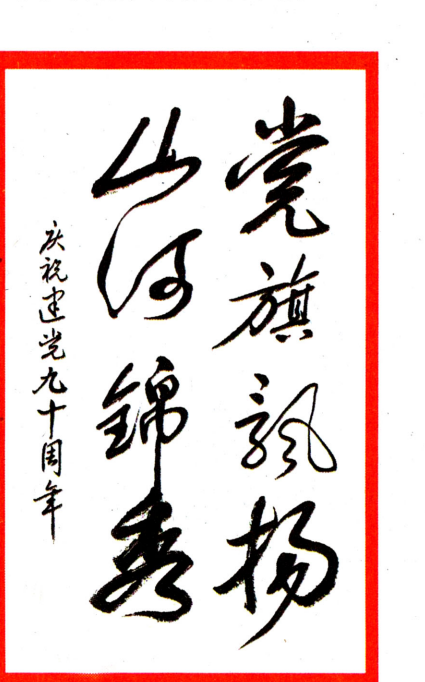 党旗飘扬
山河锦秀
庆祝建党九十周年